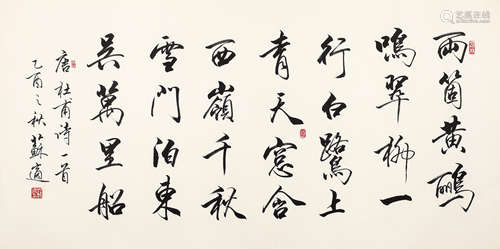 兩箇黃鸝
鳴翠柳一
行白鷺上
青天窓含
西嶺千秋
雪門泊東
吳萬里船
唐杜甫詩一首
乙酉之秋蘇適